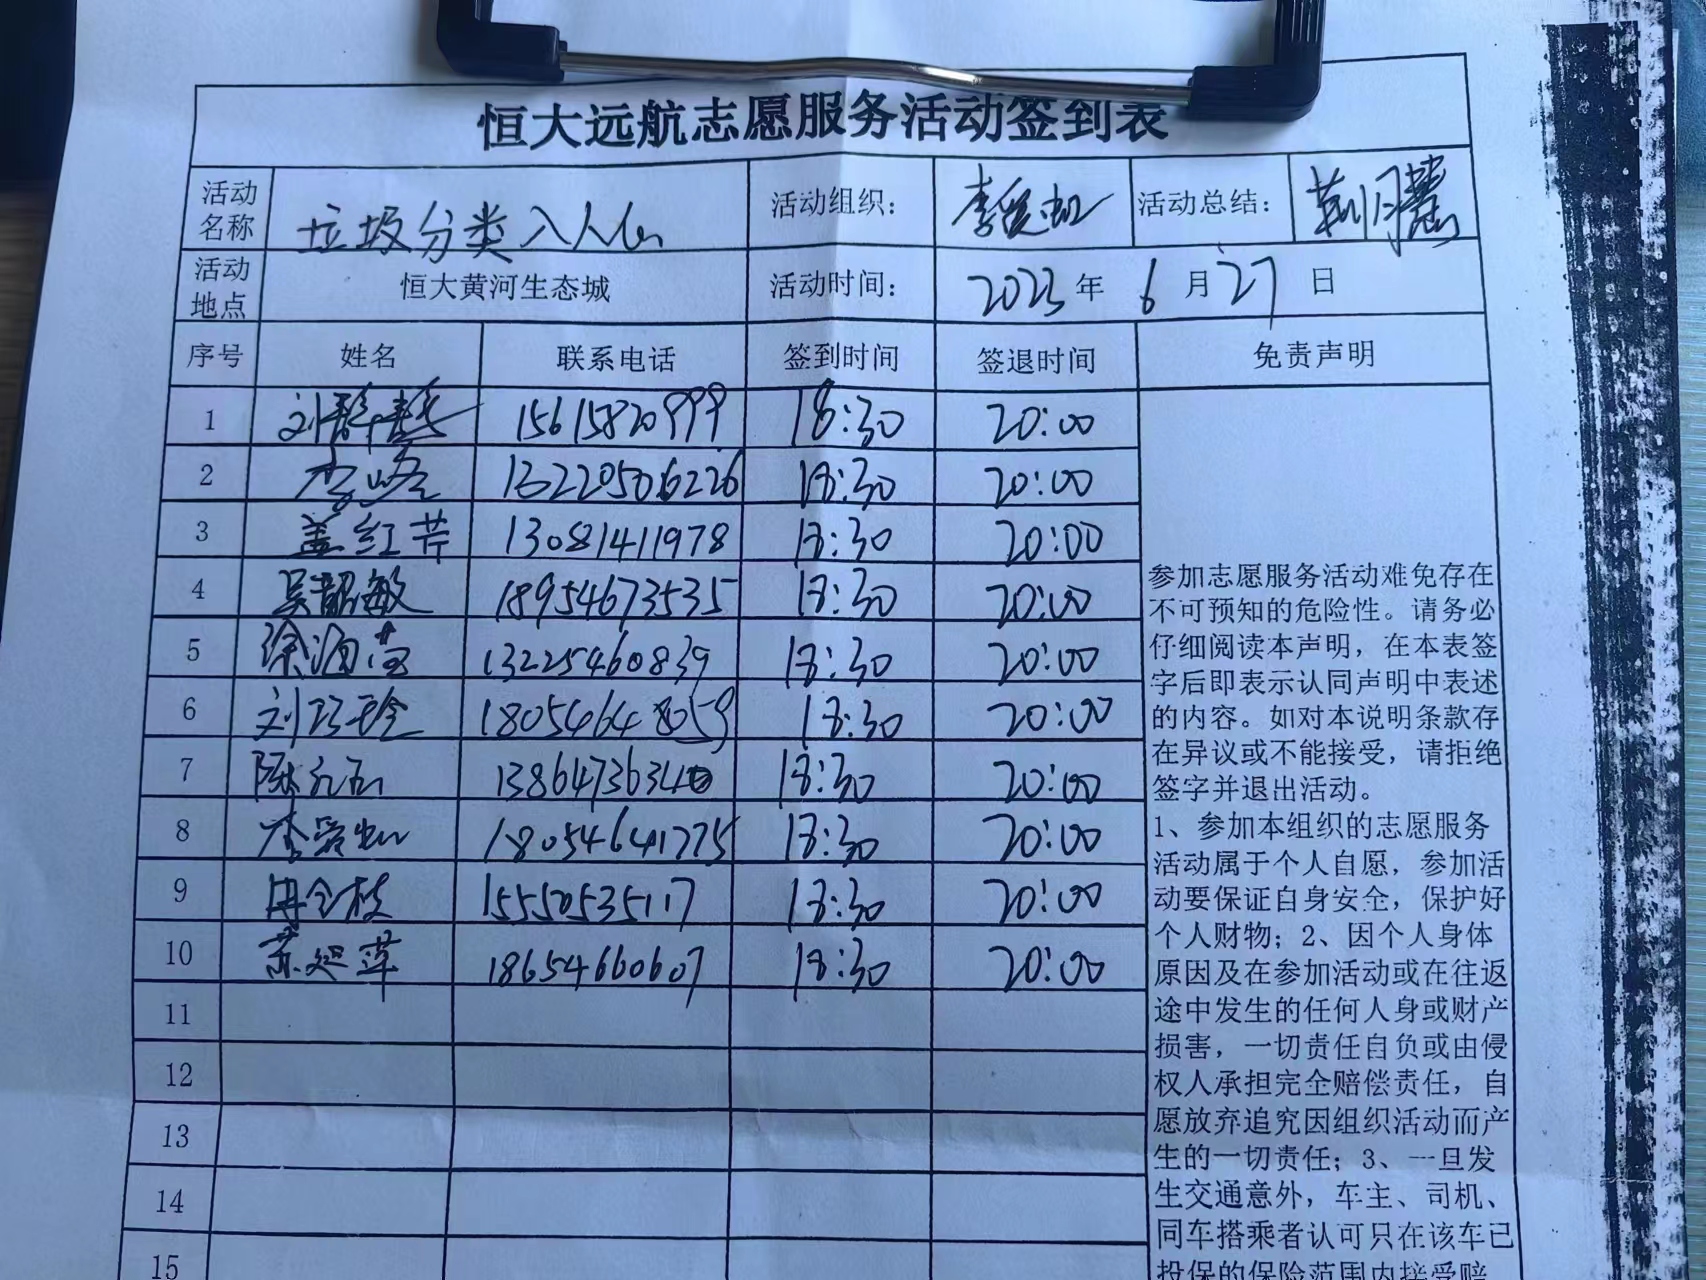 恒大远航志愿服务活动签到表
活动名称 垃圾分类入人心 活动组织： 活动总结： 荆月慧
活动地点 恒大黄河生态城 活动时间： 2023年 6月27日
序号 姓名 联系电话 签到时间 签退时间 免责声明
1 刘静静 15615820999 18:30 20:00
2 李峰 13220506226 18:30 20:00
3 盖红芹 13081411978 18:30 20:00
4 吴韶敏 18954673535 18:30 20:00
5 徐海苗 13225460839 18:30 20:00
6 刘巧玲 18054648059 18:30 20:00
7 1386473634 18:30 20:00
8 18054641775 18:30 20:00
9 15550535117 18:30 20:00
10 18654660607 18:30 20:00
11
12
13
14
15
参加志愿服务活动难免存在
不可预知的危险性。请务必
仔细阅读本声明，在本表签
字后即表示认同声明中表述
的内容。如对本说明条款存
在异议或不能接受，请拒绝
签字并退出活动。
1、参加本组织的志愿服务
活动属于个人自愿，参加活
动要保证自身安全，保护好
个人财物；2、因个人身体
原因及在参加活动或在往返
途中发生的任何人身或财产
损害，一切责任自负或由侵
权人承担完全赔偿责任，自
愿放弃追究因组织活动而产
生的一切责任；3、一旦发
生交通意外，车主、司机、
同车搭乘者认可只在该车已
投保的保险范围内接受赔